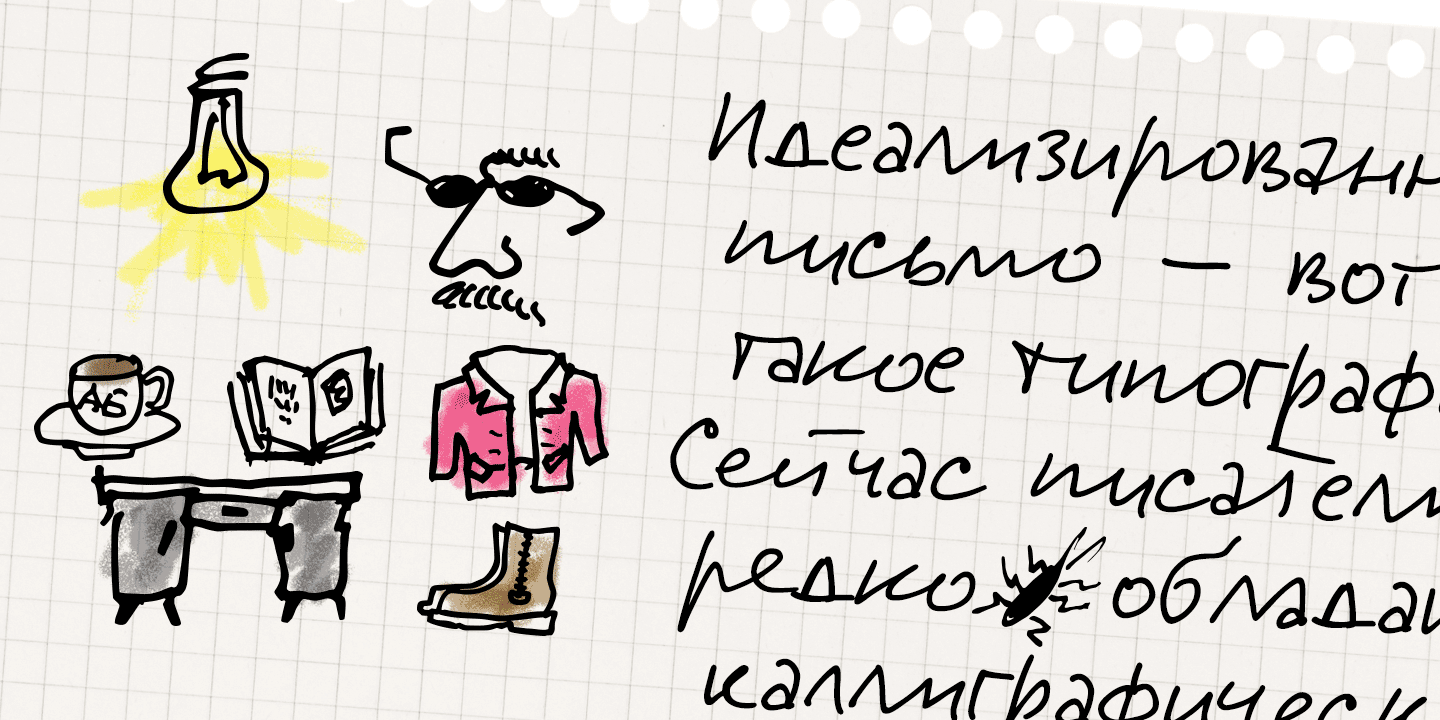 АБ
Идеализирован
письмо — вот
такое типограф
Сейчас писател
редко обладаю
каллиграфическ